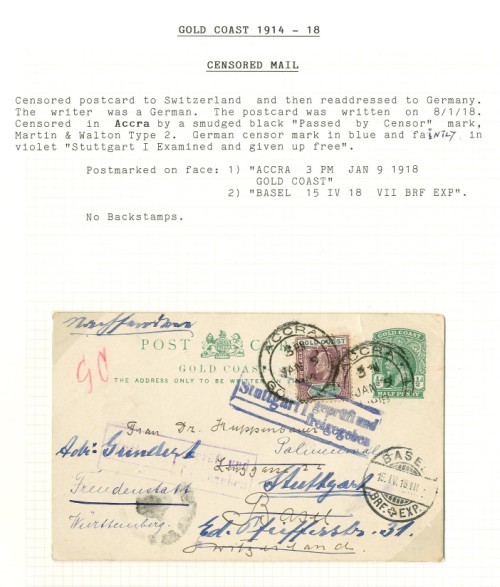 GOLD COAST 1914 - 18
CENSORED MAIL
Censored postcard to Switzerland and then readdressed to Germany.
The writer was a German. The postcard was written on 8/1/18.
Censored in Accra by a smudged black "Passed by Censor" mark,
Martin & Walton Type 2. German censor mark in blue and faintly in
violet "Stuttgart I Examined and given up free".
Postmarked on face: 1) "ACCRA 3 PM JAN 9 1918
GOLD COAST"
2) "BASEL 15 IV 18 VII BRF EXP".
No Backstamps.
Nachsenden
POST
GOLD COAST
GC
GOLD COAST
THE ADDRESS ONLY TO BE WRITTEN
ACCRA
3 PM
JAN 9
ACCRA
JAN 9
GOLD COAST
HALF PENNY
Stuttgart I geprüft und
freigegeben
Frau Dr. Kruppenbauer
Adr: Grindert
Stuttgart
Freudenstatt
Basel
Württemberg.
Ed. Pfeifferstr. 31.
Switzerland.
BASEL
BRF. EXP.